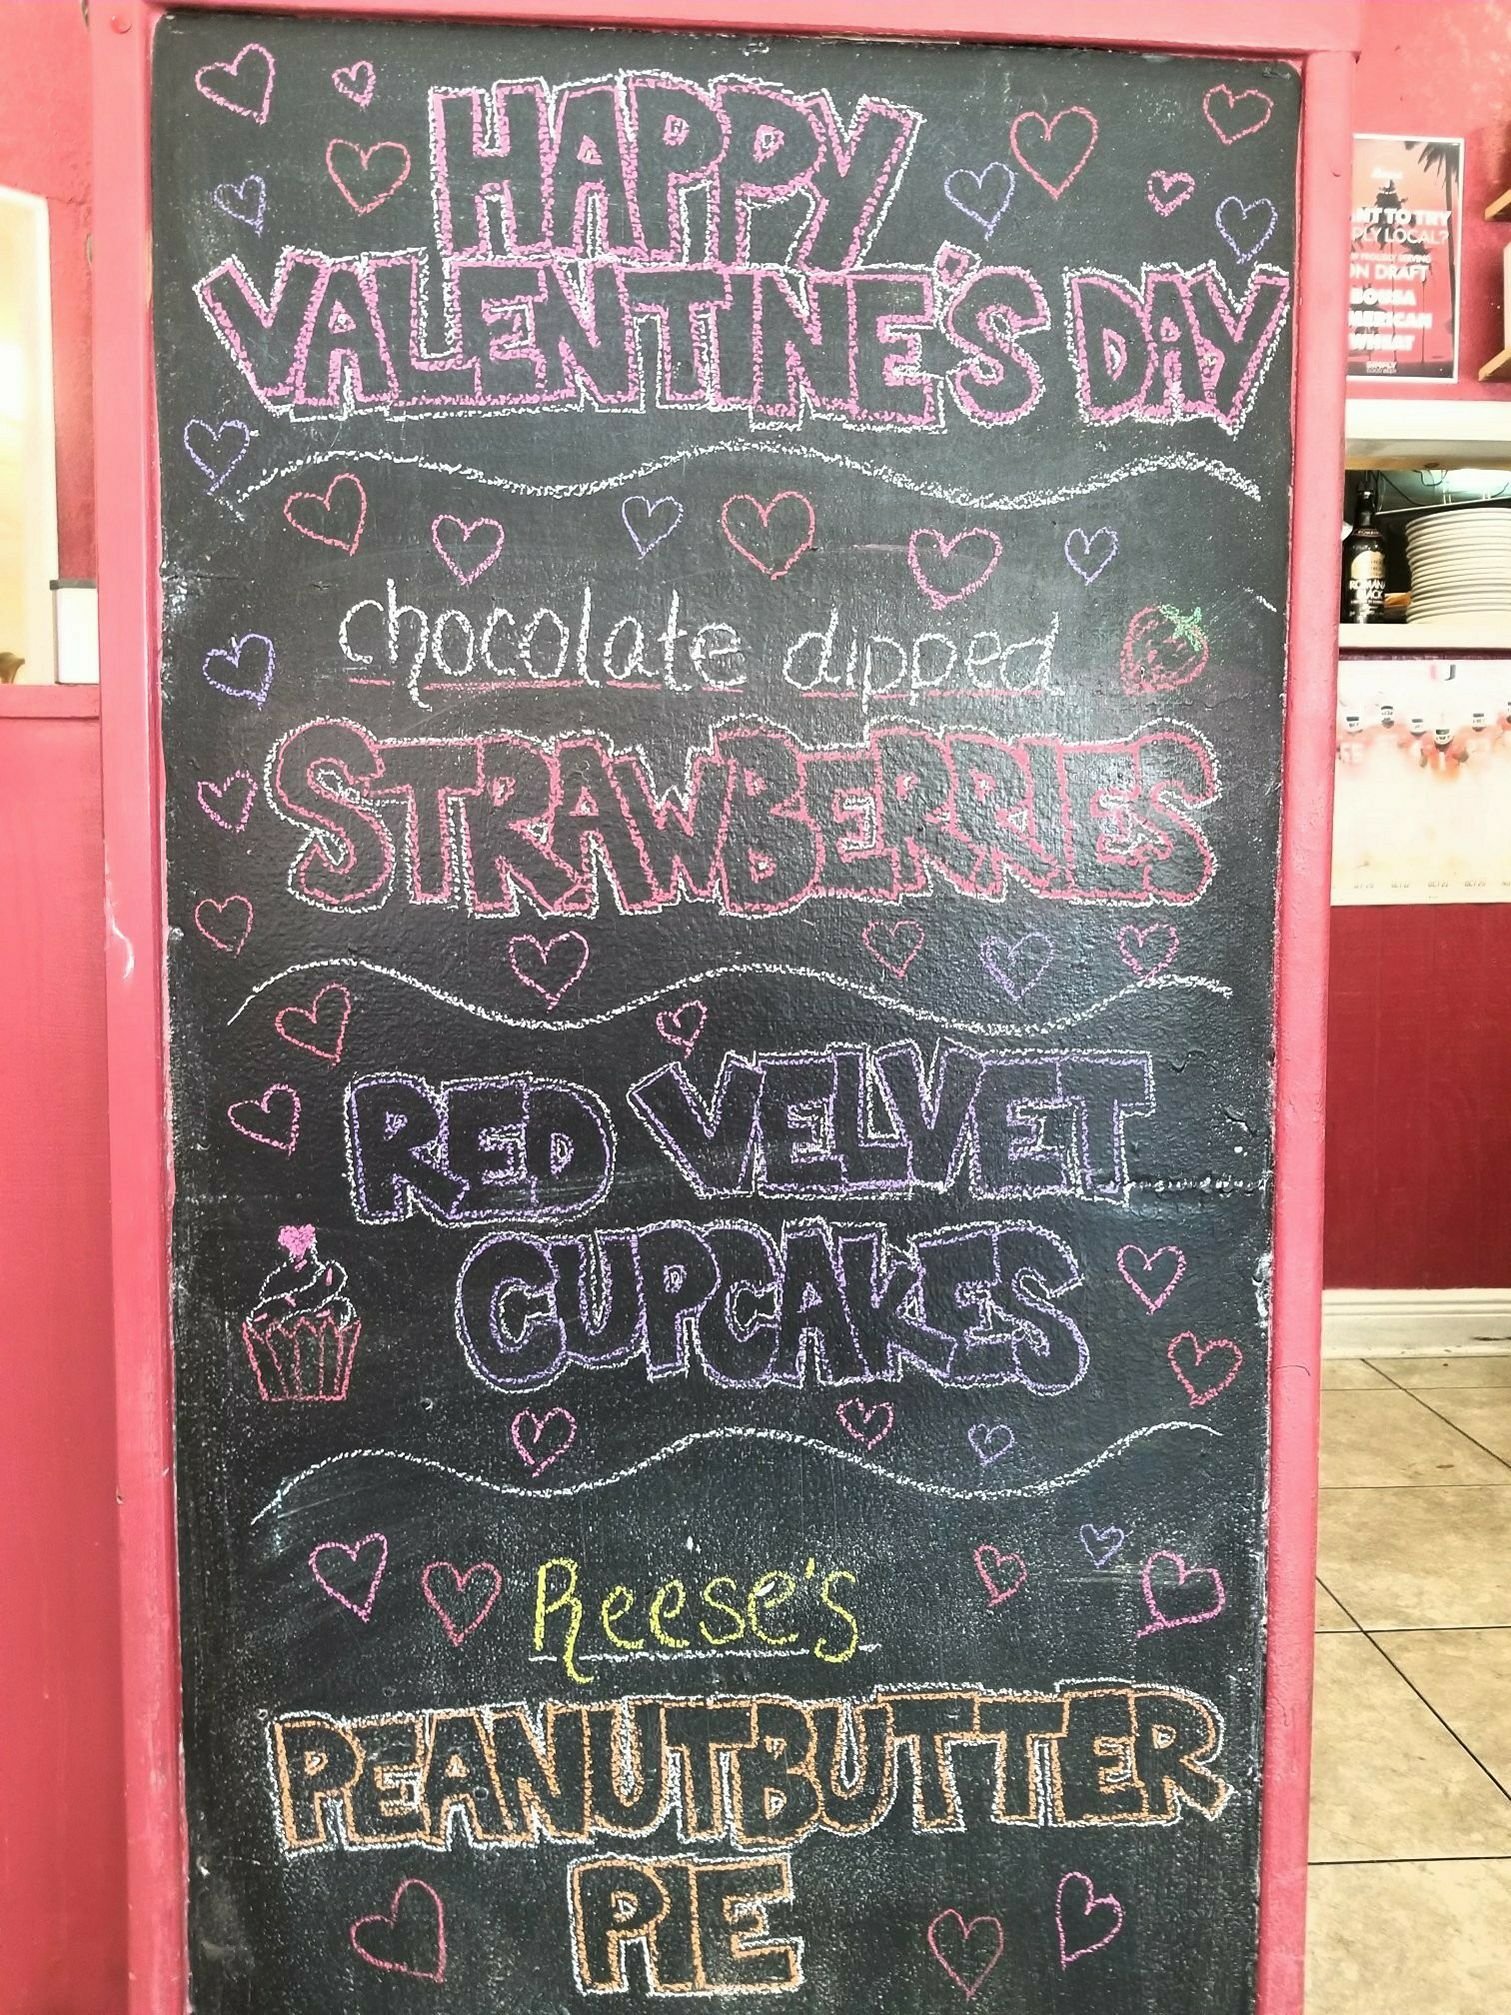 HAPPY
VALENTINE'S DAY
chocolate dipped
STRAWBERRIES
RED VELVET
CUPCAKES
Reese's
PEANUTBUTTER
PIE
NT TO TRY
PLY LOCAL?
PROUDLY SERVING
ON DRAFT
WHEAT